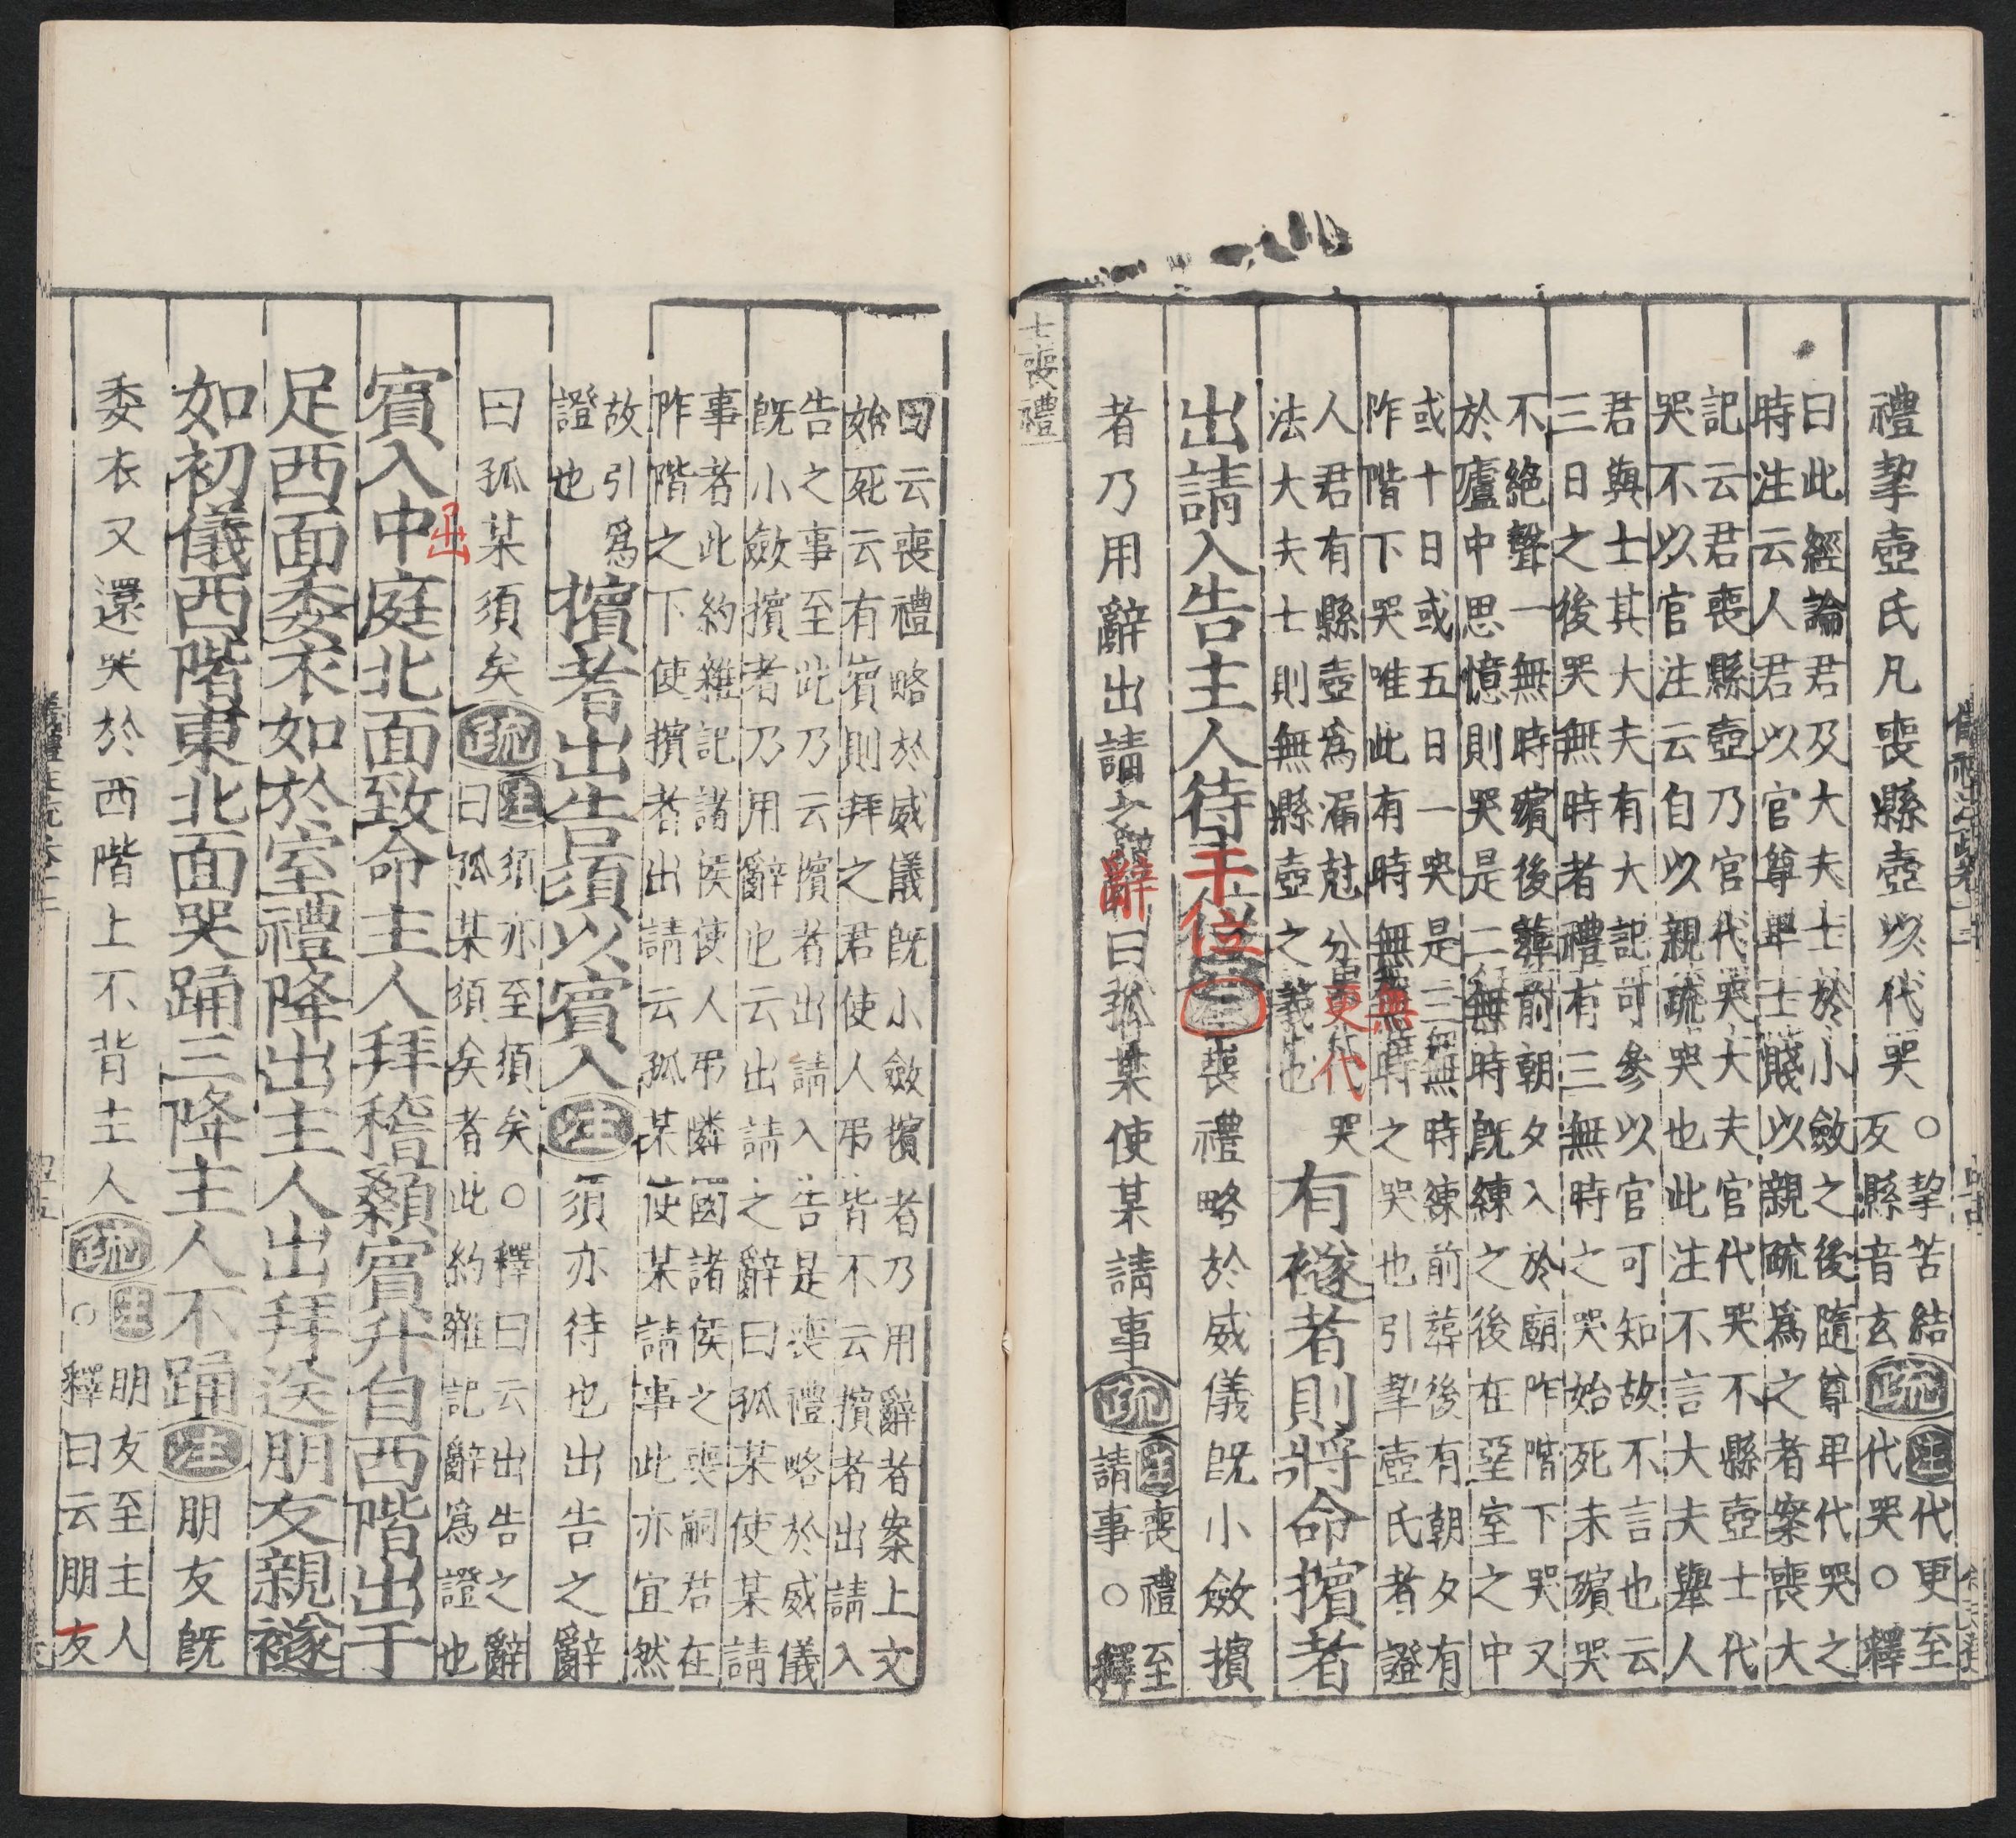 禮挈壺氏凡喪縣壺以代哭○挈苦結
反縣音玄疏注代更至
代哭○釋
曰此經論君及大夫士於小斂之後隨尊卑代哭之
時注云人君以官尊卑士賤以親疏爲之者案喪大
記云君喪縣壺乃官代哭大夫官代哭不縣壺士代
哭不以官注云自以親疏哭也此注不言大夫舉人
君與士其大夫有大記可參以官可知故不言也云
三日之後哭無時者禮有三無時之哭始死未殯哭
不絕聲一無時殯後葬前朝夕入於廟阼階下哭又
於廬中思憶則哭是二無時旣練之後在堊室之中
或十日或五日一哭是三無時練前葬後有朝夕有
阼階下哭唯此有時無無時之哭也引挈壺氏者證
人君有縣壺爲漏尅分更代哭
法大夫士則無縣壺之義也
有襚者則將命擯者
出請入告主人待于位注喪禮略於威儀旣小斂擯
者乃用辭出請之辭曰孤某使某請事疏注喪禮至
請事○釋
士喪禮
曰云喪禮略於威儀旣小斂擯者乃用辭者案上文
始死云有賓則拜之君使人弔皆不云擯者出請入
告之事至此乃云擯者出請入告是喪禮略於威儀
旣小斂擯者乃用辭也云出請之辭曰孤某使某請
事者此約雜記諸侯使人弔隣國諸侯之喪嗣君在
阼階之下使擯者出請云孤某使某請事此亦宜然
故引爲
證也
擯者出告須以賓入注須亦待也出告之辭
曰孤某須矣疏注須亦至須矣○釋曰云出告之辭
曰孤某須矣者此約雜記辭爲證也
賓入中庭北面致命主人拜稽顙賓升自西階出于
足西面委衣如於室禮降出主人出拜送朋友親襚
如初儀西階東北面哭踊三降主人不踊注朋友旣
委衣又還哭於西階上不背主人疏注朋友至主人
○釋曰云朋友